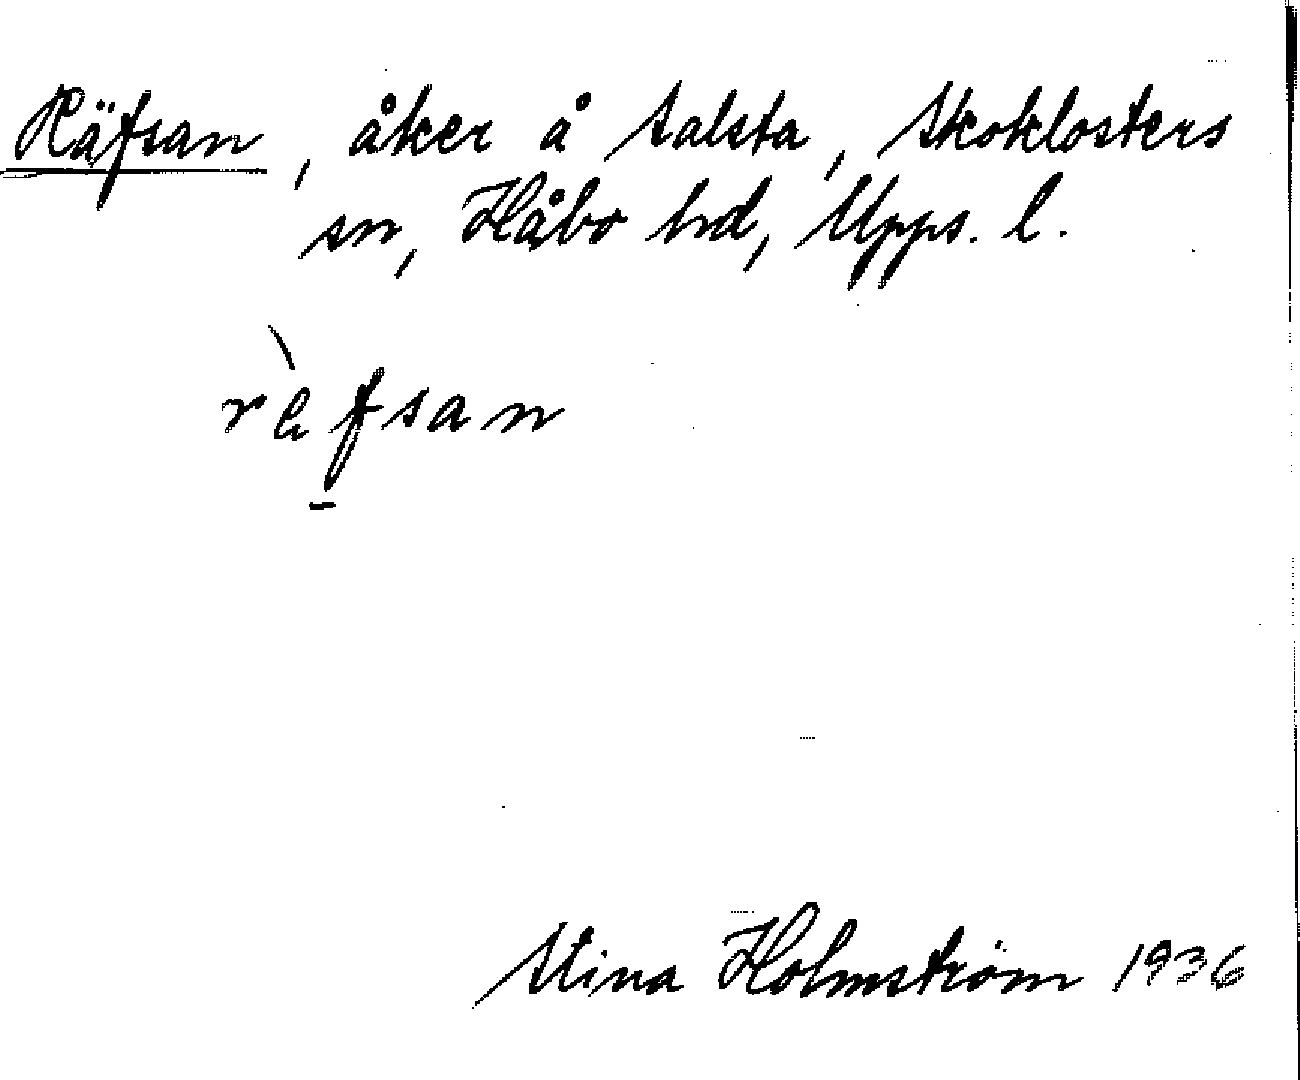 Räfsan, åker å Salsta, Skoklosters
sn, Håbo hd, Upps. l.
rèfsan
Stina Holmström 1936